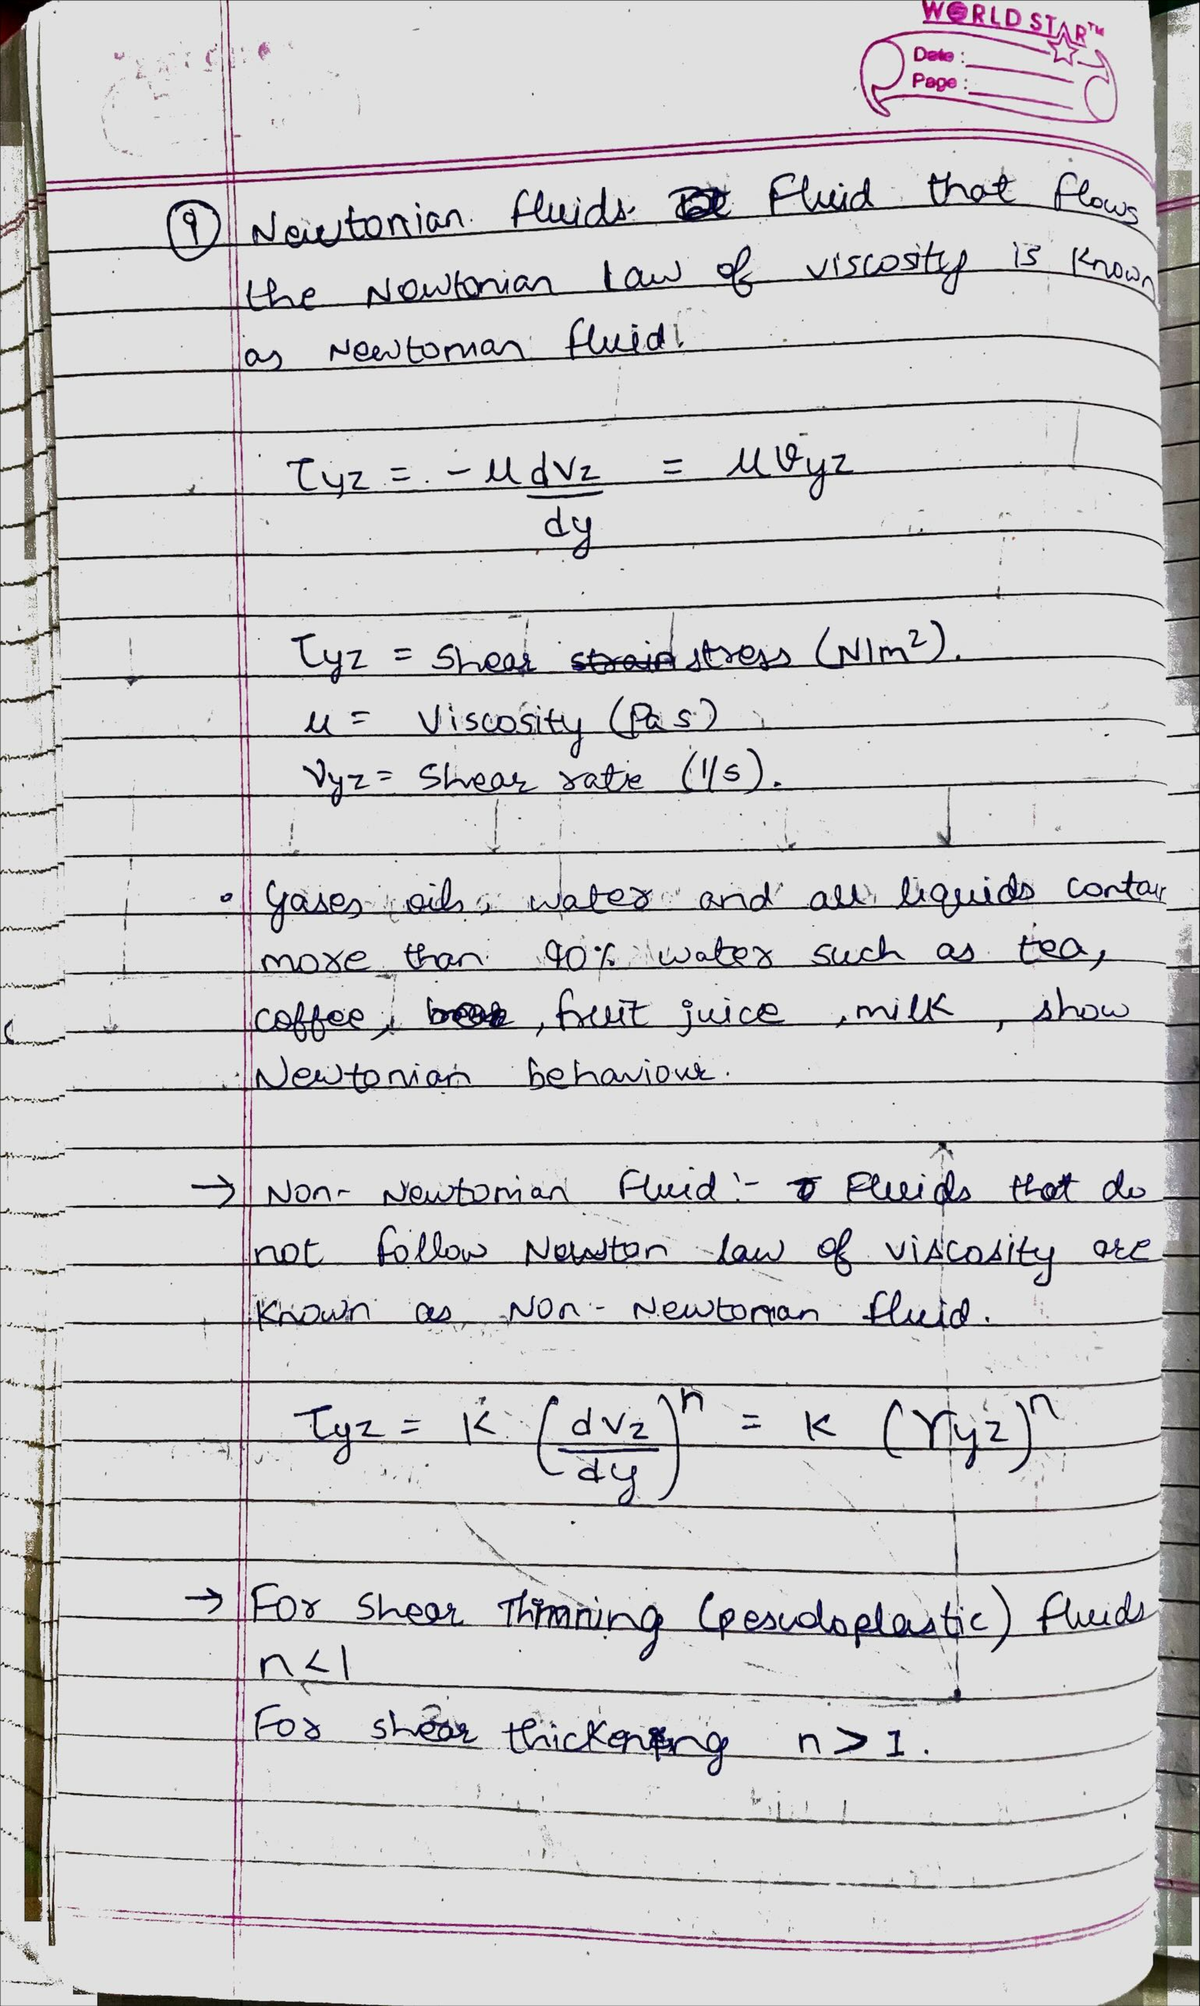 WORLD STAR™
Date :
Page :
9 Newtonian fluids Fluid that flows
the Newtonian law of viscosity is known
as Newtonian fluid.
τyz = - μ dvz/dy = μ ϑyz
τyz = Shear strain stress (N/m²).
μ = Viscosity (Pa s)
νyz = Shear rate (1/s).
• Gases oils, water and all liquids contai
more than 90% water such as tea,
coffee, , fruit juice , milk , show
Newtonian behaviour.
→ Non- Newtonian Fluid :- Fluids that do
not follow Newton law of viscosity are
known as Non- Newtonian fluid.
τyz = K (dvz/dy)ⁿ = K (γyz)ⁿ
→ For shear Thinning (pesudoplastic) fluids
n<1
For shear thickening n > 1.